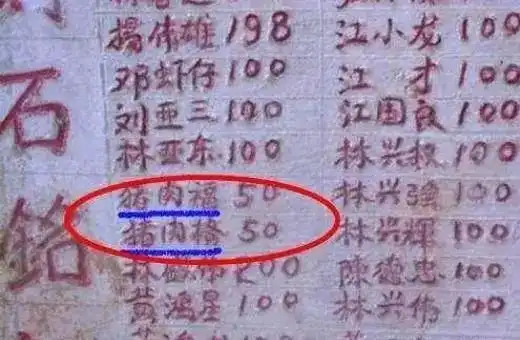 石
铭
杨伟雄 198 江小龙 100
邓虾仔 100 江 才 100
刘亚三 100 江国良 100
林亚东 100 林兴权 100
猪肉福 50 林兴强 100
猪肉格 50 林兴辉 100
林 200 陈德忠 100
黄鸿星 100 林兴伟 100